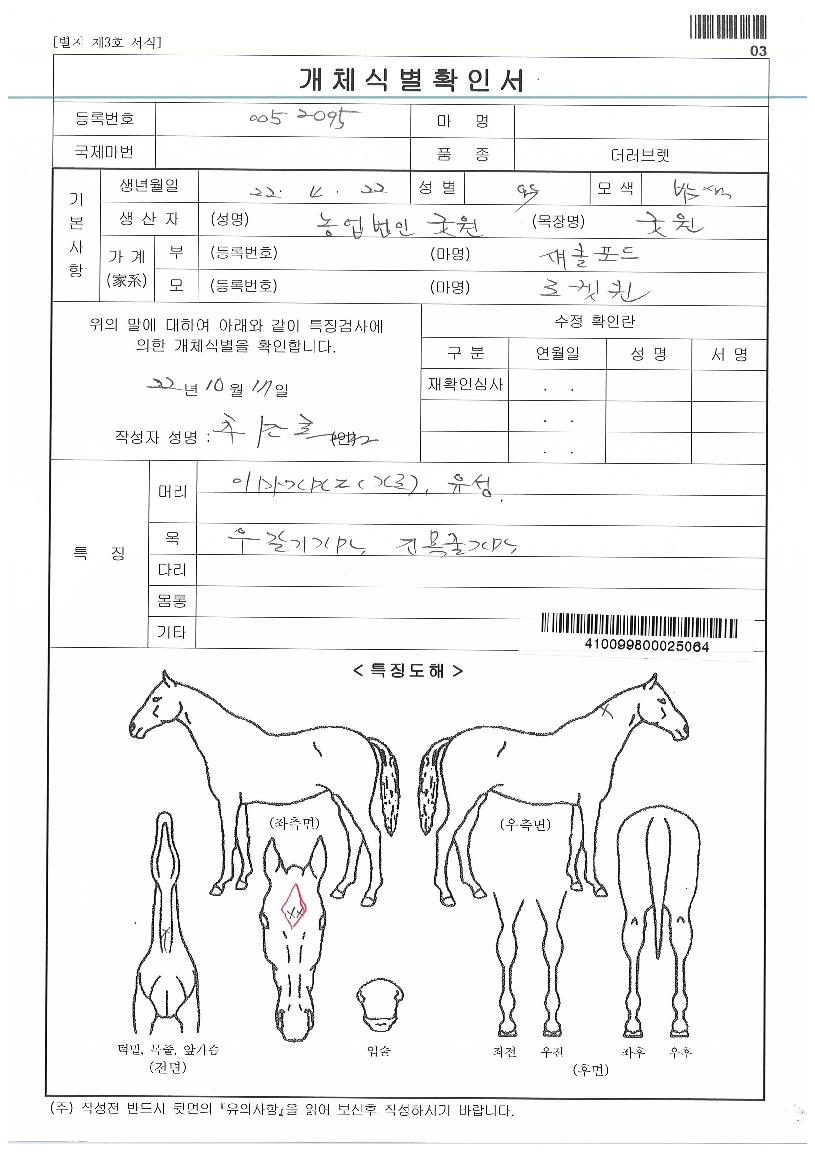 [별지 제3호 서식]
03
개체식별확인서
등록번호 005 2095 마 명
국제마번 품 종 더러브렛
기본사항
생년월일 22. 4. 22 성 별 모 색
생 산 자 (성명) 농업법인 굿윈 (목장명) 굿윈
가 계 (家系) 부 (등록번호) (마명) 섀클포드
모 (등록번호) (마명) 로켓윈
위의 말에 대하여 아래와 같이 특징검사에
의한 개체식별을 확인합니다.
22 년 10 월 17 일
작성자 성명 : (인)
수정 확인란
구 분 연월일 성 명 서 명
재확인심사 . .
. .
. .
특 징
머리 유성.
목
다리
몸통
기타
410099800025064
< 특징도해 >
(좌측면) (우측면)
턱밑, 목줄, 앞가슴 입술 좌전 우전 좌후 우후
(전면) (후면)
(주) 작성전 반드시 뒷면의 『유의사항』을 읽어 보신후 작성하시기 바랍니다.